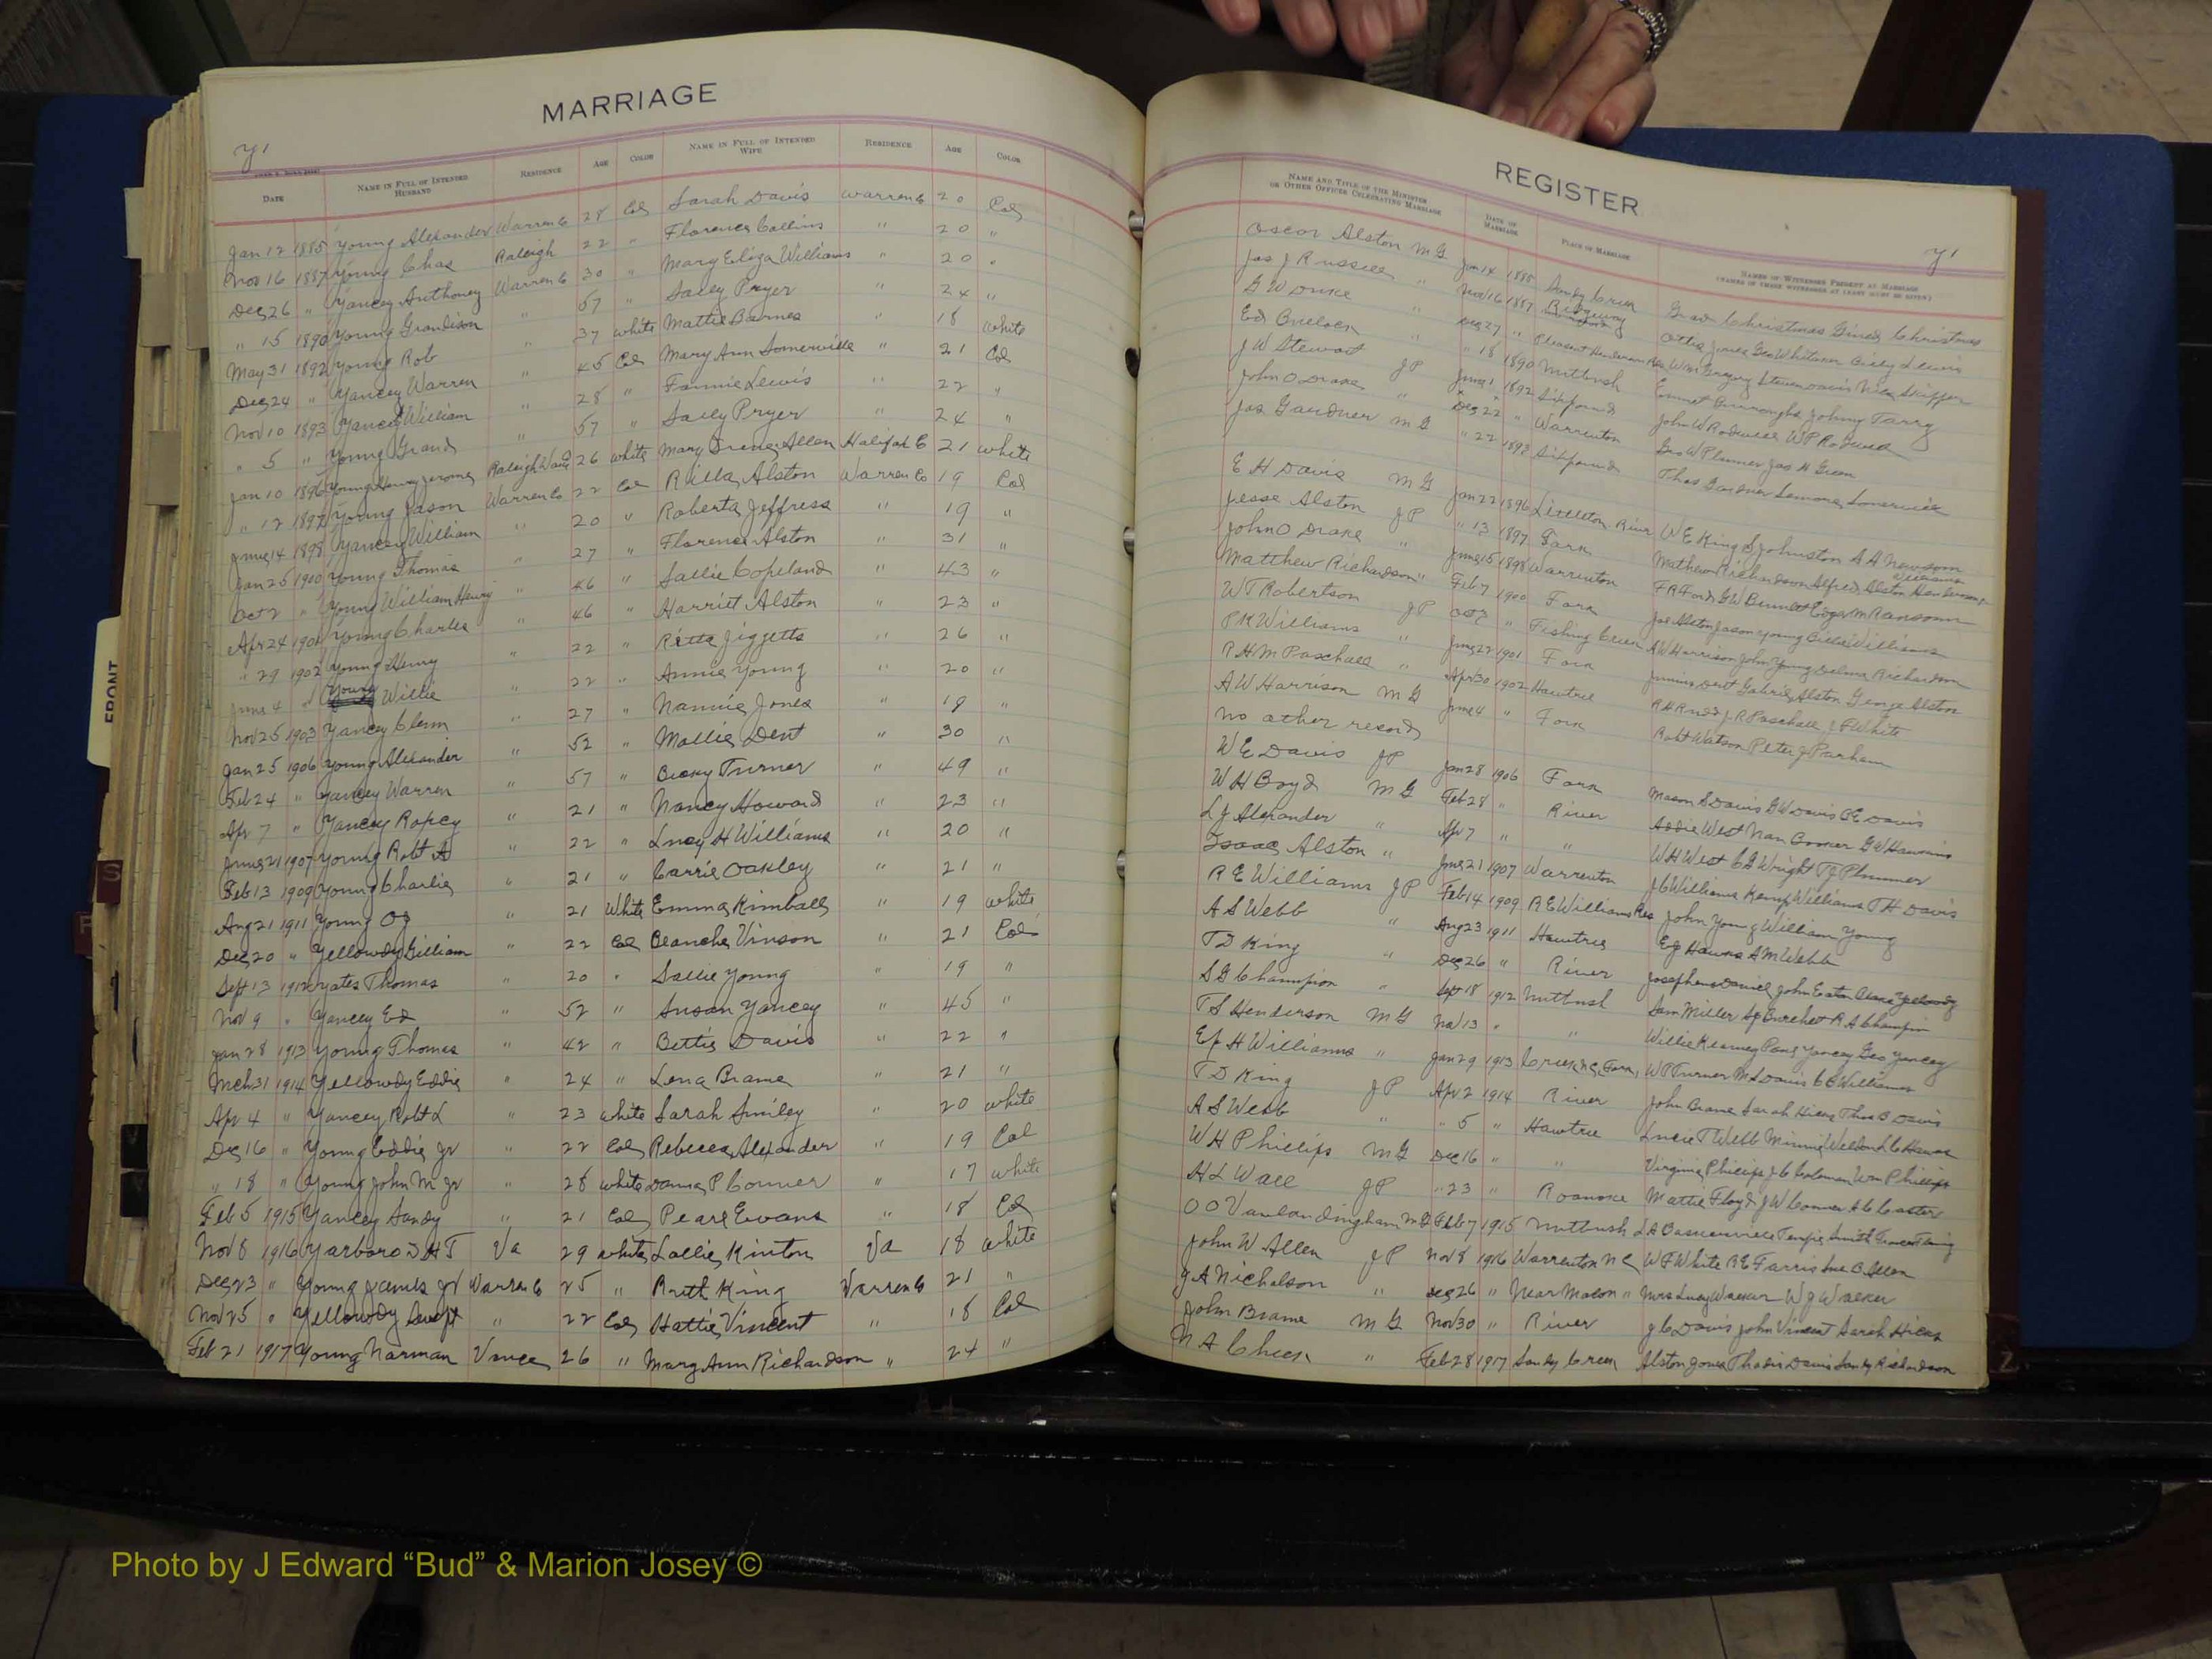 MARRIAGE
Y1
DATE NAME IN FULL OF INTENDED HUSBAND RESIDENCE AGE COLOR NAME IN FULL OF INTENDED WIFE RESIDENCE AGE COLOR
Jan 12 1885 Young Alexander Warren Co 28 Col Sarah Davis Warren Co 20 Col
Nov 16 1887 Young Chas Raleigh 22 " Florence Collins " 20 "
Dec 26 " Yancey Anthoney Warren Co 30 " Mary Eliza Williams " 20 "
" 15 1890 Young Grandison " 57 " Salley Pryer " 24 "
May 31 1892 Young Rob " 37 white Mattie Barnes " 18 white
Dec 24 " Yancey Warren " 45 Col Mary Ann Somerville " 21 Col
Nov 10 1893 Yancey William " 28 " Fannie Lewis " 22 "
" 5 " Young Grand " 57 " Salley Pryer " 24 "
Jan 10 1896 Young Henry Jerome Raleigh Wake 26 white Mary Irene Allen Halifax C 21 white
" 12 1897 Young Jason Warren Co 22 Col Rilla Alston Warren Co 19 Col
June 14 1898 Yancey William " 20 " Roberta Jeffress " 19 "
Jan 25 1900 Young Thomas " 27 " Florence Alston " 31 "
Oct 2 " Young William Henry " 46 " Sallie Copeland " 43 "
Apr 24 1901 Young Charles " 46 " Harriet Alston " 23 "
" 29 1902 Young Henry " 22 " Ritta Jiggetts " 26 "
June 4 " Young Willie " 22 " Annie Young " 20 "
Nov 25 1903 Yancey Clem " 27 " Nannie Jones " 18 "
Jan 25 1906 Young Alexander " 52 " Mollie Dent " 30 "
Feb 24 " Yancey Warren " 57 " Becky Turner " 49 "
Apr 7 " Yancey Ropey " 21 " Nancy Howard " 23 "
June 21 1907 Young Robt A " 22 " Lucy H Williams " 20 "
Feb 13 1909 Young Charlie " 21 " Carrie Oakley " 21 "
Aug 21 1911 Young OJ " 21 White Emma Kimball " 19 white
Dec 20 " Yellowdy Gilliam " 22 Col Blanche Vinson " 21 Col
Sept 13 1912 Yates Thomas " 20 " Sallie Young " 19 "
Nov 9 " Yancey Ed " 52 " Susan Yancey " 45 "
Jan 28 1913 Young Thomas " 42 " Bettie Davis " 22 "
Mch 31 1914 Yellowdy Eddie " 24 " Lena Brame " 21 "
Apr 4 " Yancey Robt L " 23 white Sarah Smiley " 20 white
Dec 16 " Young Eddie Jr " 22 Col Rebecca Alexander " 19 Col
" 18 " Young John M Jr " 28 white Donna P Conner " 17 white
Feb 5 1915 Yancey Sandy " 21 Col Pearl Evans " 18 Col
Nov 8 1916 Yarboro D H T Va 29 white Lallie Kinton Va 18 white
Dec 23 " Young James Jr Warren Co 25 " Ruth King Warren Co 21 "
Nov 25 " Yellowdy Swept " 22 Col Hattie Vincent " 18 Col
Feb 21 1917 Young Norman Vance 26 " Mary Ann Richardson " 24 "
REGISTER
Y1
NAME AND TITLE OF THE MINISTER OR OTHER OFFICER CELEBRATING MARRIAGE DATE OF MARRIAGE PLACE OF MARRIAGE NAMES OF WITNESSES PRESENT AT MARRIAGE
Oscar Alston M G Jan 14 1885 Sandy Creek Christmas Christmas
Jas J Russell " Nov 16 1887 Ridgeway Ottie Jones Geo Whitern Lewis
G W Duke " Dec 27 " Pleasant Henderson Res Wm Gregory Steven Davis Nick Skipper
Ed Bullock " " 18 1890 Nutbush Emmet Burroughs Johny Tarry
J W Stewart J P June 1 1892 Sixpound John W Rodwell W P Rodwell
John O Drake " Dec 22 " Warrenton Geo W Plummer Jas H Green
Jas Gardner M G " 22 1893 Sixpound Thos Gardner Somerville
E H Davis M G Jan 22 1896 Littleton River W E King S Johnston A A Newsom
Jesse Alston J P " 13 1897 Fork Mathew Richardson Alfred Alston Henderson Williams
John O Drake " June 15 1898 Warrenton F R Ford G W Burnett M Ransom
Matthew Richardson " Feb 7 1900 Fork Joe Alston Jason Young Williams
W T Robertson J P Oct 3 " Fishing Creek A W Harrison John Young Richardson
P K Williams " June 22 1901 Fork Junius Dent Gabriel Alston George Alston
R H M Paschall " Apr 30 1902 Hawtree J R Paschall J P White
A W Harrison M G June 4 " Fork Robt Watson Peter J Parham
No other record
W E Davis J P Jan 28 1906 Fork Macon S Davis G W Davis P E Davis
W H Boyd M G Feb 28 " River Addie West Nan Cooker G W Hawkins
L J Alexander " Apr 7 " " W H West C G Wright T J Plummer
Isaac Alston " June 21 1907 Warrenton J C Williams Kemp Williams T H Davis
R E Williams J P Feb 14 1909 R E Williams Res John Young William Young
A S Webb " Aug 23 1911 Hawtree A M Webb
T D King " Dec 26 " River Josephene Daniel John Eaton Yellowdy
S G Champion " Sept 18 1912 Nutbush Sam Miller Burchett R A Champion
T S Henderson M G Nov 13 " " Willie Kearney Pony Yancey Geo Yancey
Ef H Williams " Jan 29 1913 W P Turner M S Davis C C Williams
T D King J P Apr 2 1914 River John Brame Sarah Hicks Thos B Davis
A S Webb " " 5 " Hawtree Lucie T Webb Minnie Weldon
W H Phillips M G Dec 16 " " Virginia Phillips J C Coleman Wm Phillips
H L Wall J P " 23 " Roanoke Mattie Floyd J W Conner A C Coster
O O Vanlandingham M G Feb 7 1915 Nutbush
John W Allen J P Nov 8 1916 Warrenton N C W F White R E Farris
J A Nicholson " Dec 26 " Near Macon " Mrs Lucy Walker W J Walker
John Brame M G Nov 30 " River J C Davis John Vincent Sarah Hicks
N A Cheek " Feb 28 1917 Sandy Creek Alston Jones Davis Sandy Richardson
FRONT
S
Z
Photo by J Edward “Bud” & Marion Josey ©